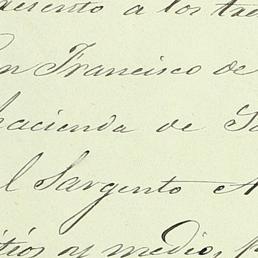 a los tre
Francisco de
hacienda de
Sargento
y medio,